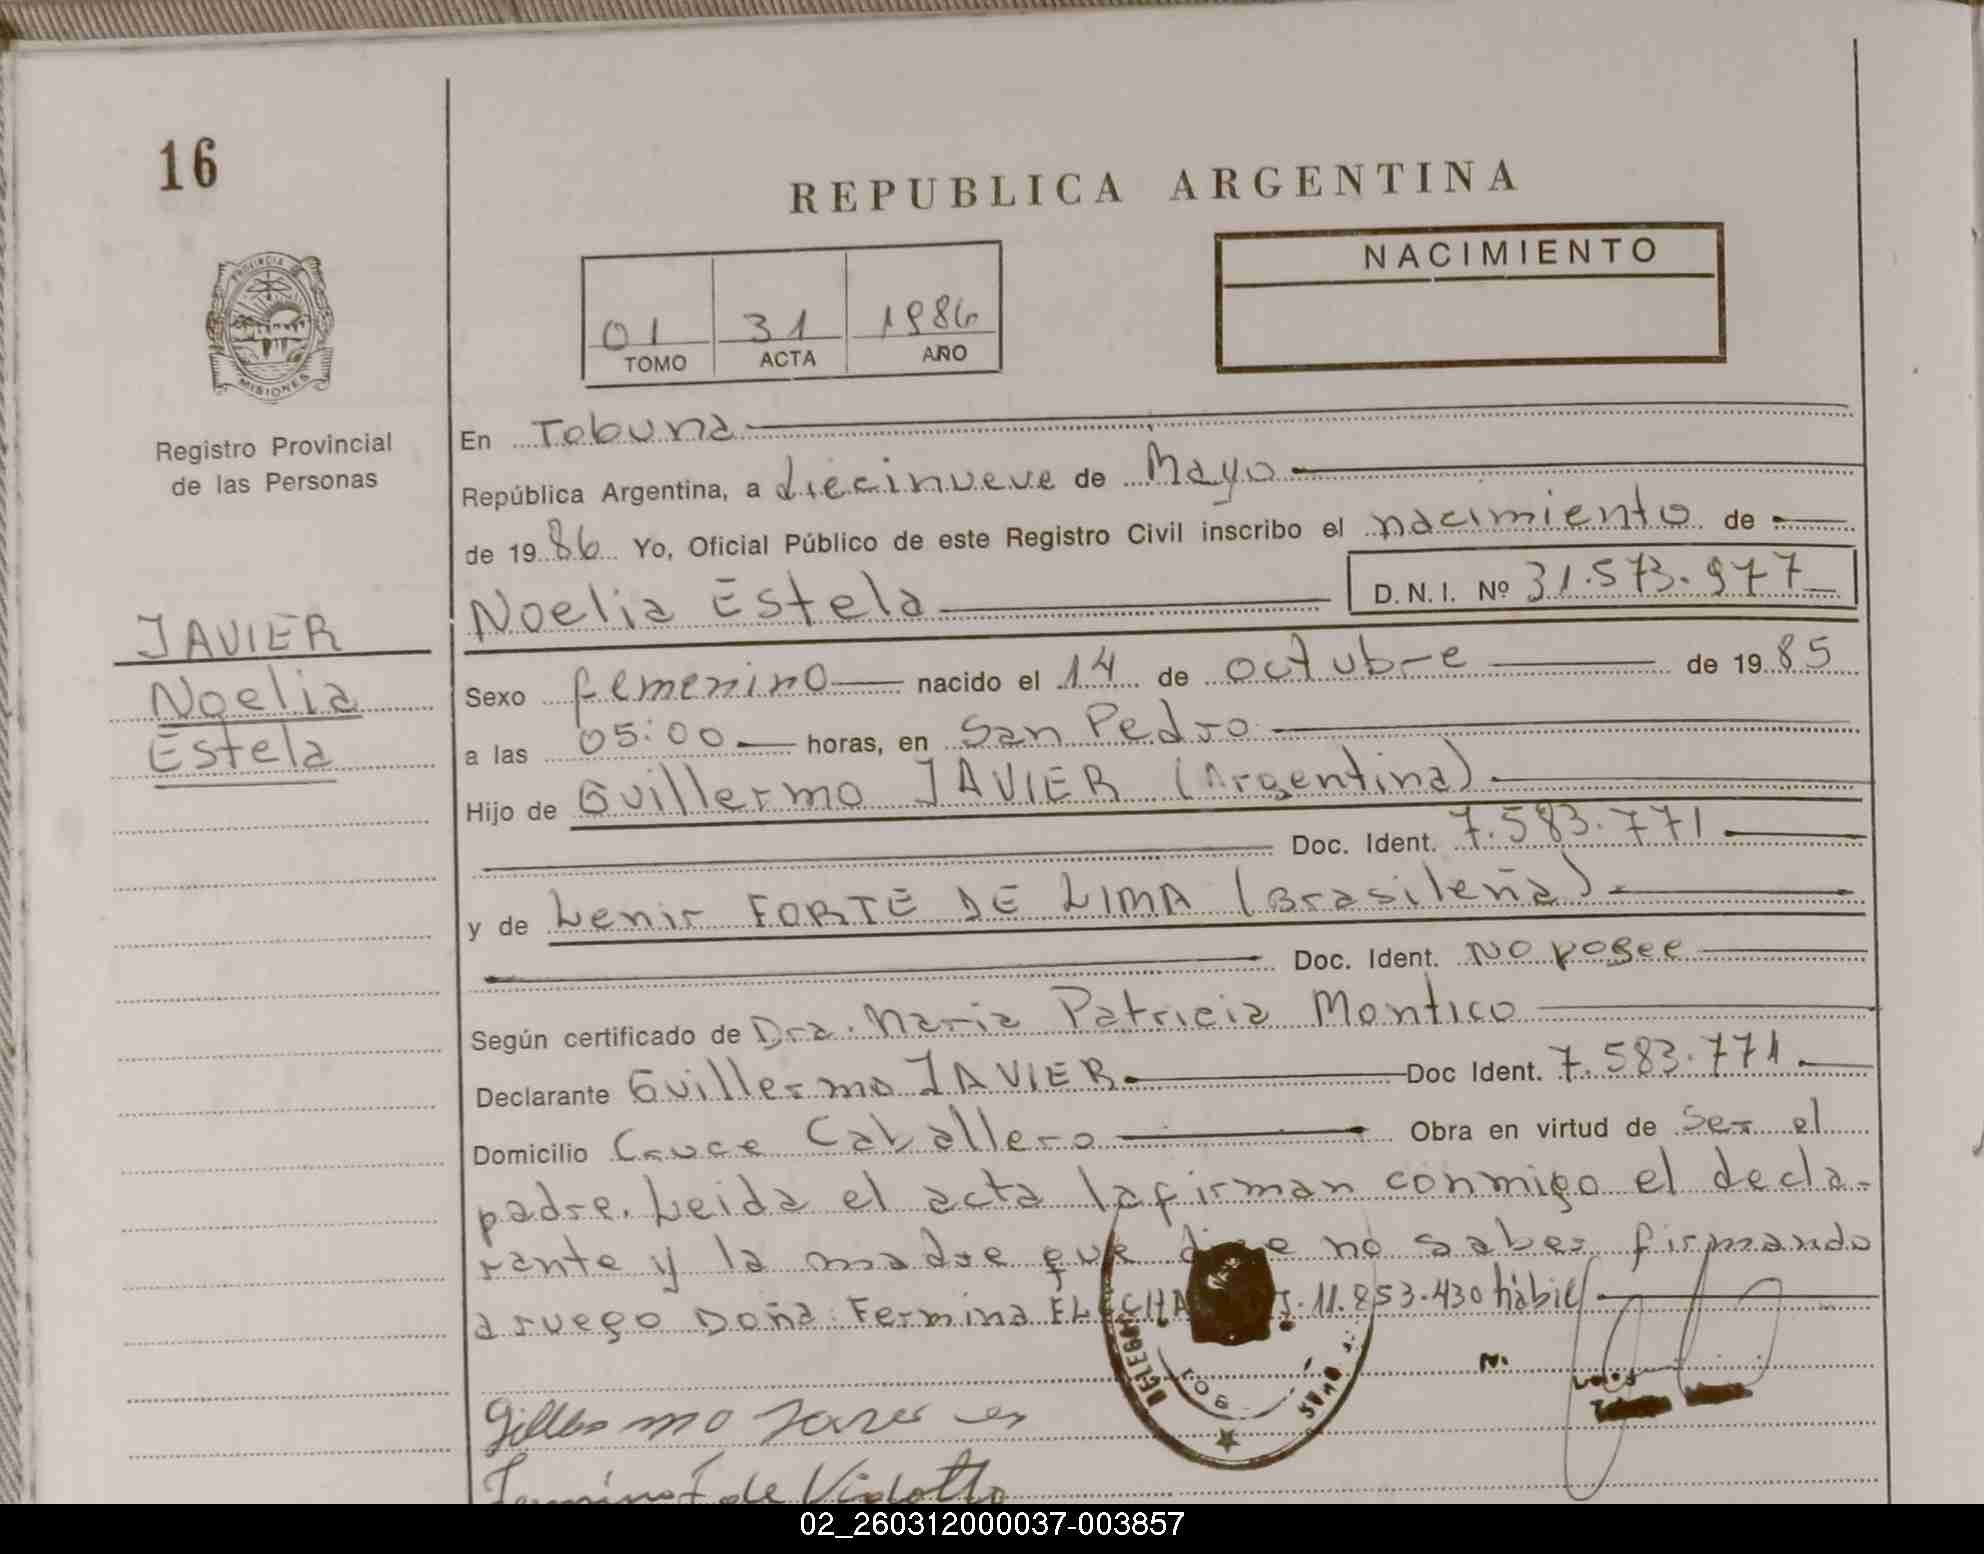 16
REPUBLICA ARGENTINA
PROVINCIA
MISIONES
Registro Provincial
de las Personas
NACIMIENTO
01 31 1986
TOMO ACTA AÑO
En Tobuna
República Argentina, a diecinueve de Mayo
de 1986 Yo, Oficial Público de este Registro Civil inscribo el nacimiento de
Noelia Estela D.N.I. Nº 31.573.977
JAVIER
Noelia
Estela
Sexo femenino nacido el 14 de octubre de 1985
a las 05:00 horas, en San Pedro
Hijo de Guillermo JAVIER (Argentina)
Doc. Ident. 7.583.771
y de Lenir FORTE DE LIMA (Brasileña)
Doc. Ident. No posee
Según certificado de Dra. Maria Patricia Montico
Declarante Guillermo JAVIER Doc Ident. 7.583.771
Domicilio Cruce Caballero Obra en virtud de ser el
padre. Leida el acta la firman conmigo el decla-
rante y la madre que no saber firmando
a ruego Doña Fermina 11.853.430 hábil
de Vidotto
02_260312000037-003857